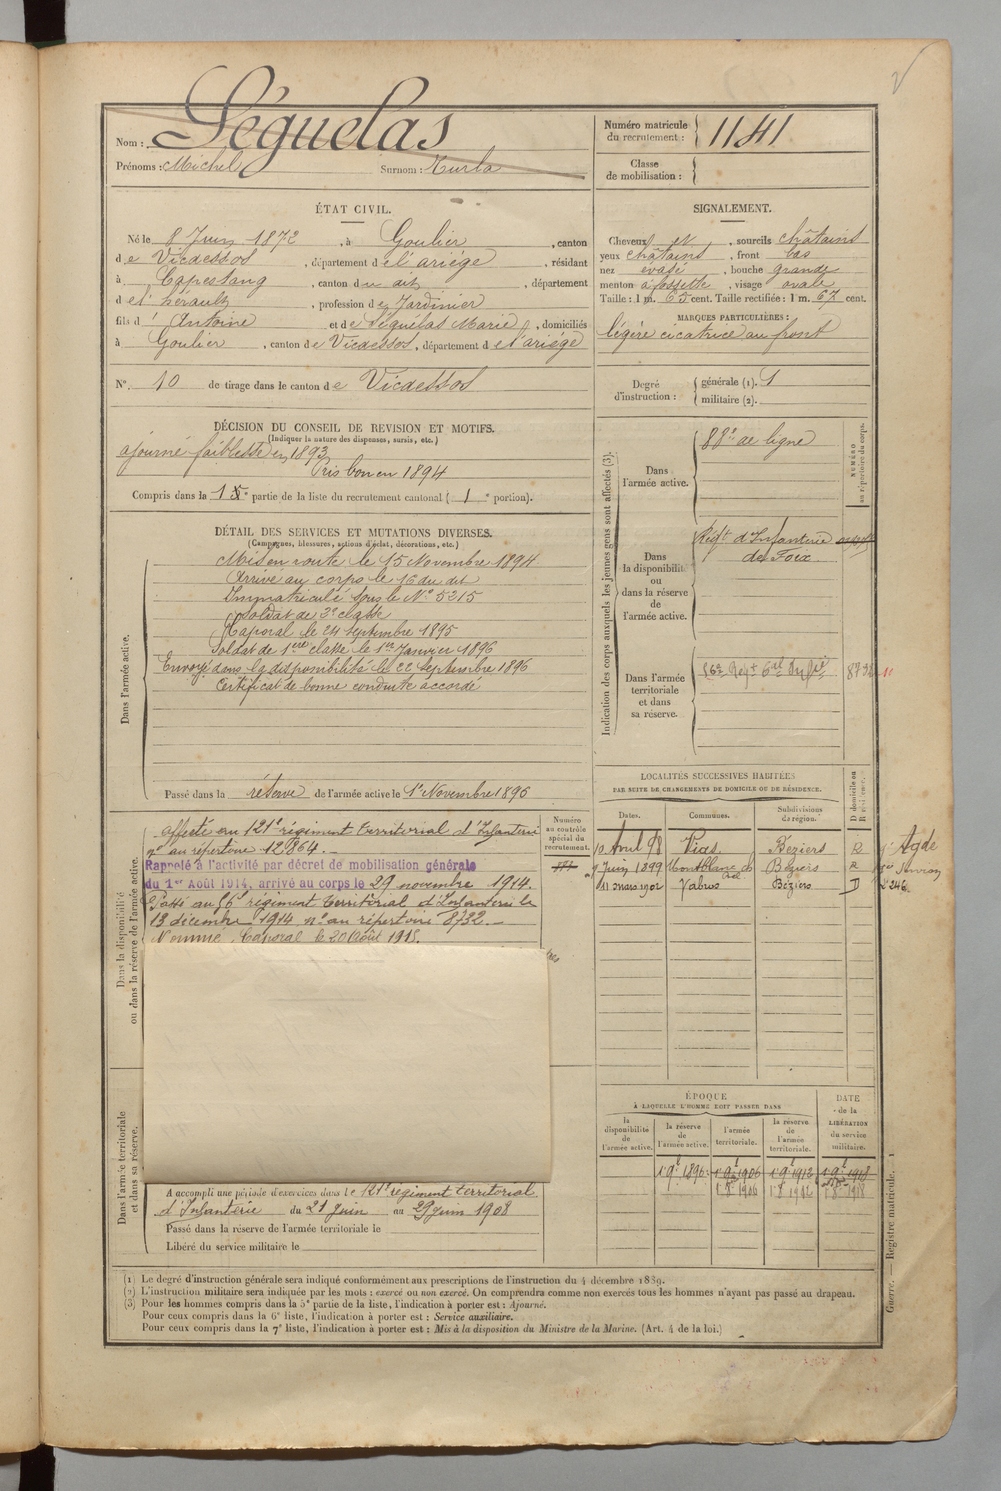 Nom : Séguélas
Prénoms : Michel Surnom : Hurla
Numéro matricule du recrutement : 1141
Classe de mobilisation :
ÉTAT CIVIL.
Né le 8 Juin 1872, à Goulier, canton
de Vicdessos, département de l'ariège, résidant
à Capestang, canton du dit, département
de l'hérault, profession de Jardinier
fils d'Antoine et de Séguélas Marie, domiciliés
à Goulier, canton de Vicdessos, département de l'ariège
N° 10 de tirage dans le canton de Vicdessos
SIGNALEMENT.
Cheveux et, sourcils châtains
yeux châtains, front bas
nez evasé, bouche grande
menton à fossette, visage ovale
Taille : 1 m. 65 cent. Taille rectifiée : 1 m. 67 cent.
MARQUES PARTICULIÈRES :
légère cicatrice au front
Degré d'instruction : générale (1).
militaire (2).
DÉCISION DU CONSEIL DE REVISION ET MOTIFS.
(Indiquer la nature des dispenses, sursis, etc.)
ajourné faiblesse en 1893
Pris bon en 1894
Compris dans la 1e partie de la liste du recrutement cantonal ( 1e portion).
DÉTAIL DES SERVICES ET MUTATIONS DIVERSES.
(Campagnes, blessures, actions d'éclat, décorations, etc.)
Dans l'armée active.
Mis en route le 15 Novembre 1894
Arrivé au corps le 16 du dit
Immatriculé sous le N° 5215
Soldat de 2e classe
Caporal le 24 septembre 1895
Soldat de 1ère classe le 1er Janvier 1896
Envoyé dans la disponibilité le 22 septembre 1896
Certificat de bonne conduite accordé
Passé dans la réserve de l'armée active le 1er Novembre 1896
Indication des corps auxquels les jeunes gens sont affectés (3).
NUMÉRO au répertoire du corps.
Dans l'armée active.
88e de ligne
Dans la disponibilité ou dans la réserve de l'armée active.
Régt d'Infanterie
de Foix
Dans l'armée territoriale et dans sa réserve.
8732
LOCALITÉS SUCCESSIVES HABITÉES
PAR SUITE DE CHANGEMENTS DE DOMICILE OU DE RÉSIDENCE.
Dates. Communes. Subdivisions de région. D domicile ou R résidence.
10 Avril 98 Vias Beziers R
9 Juin 1899 Montblanc Béziers R
11 mars 1902 Béziers D
Agde
Dans la disponibilité ou dans la réserve de l'armée active.
Numéro au contrôle spécial du recrutement.
affecté au 121e régiment Territorial d'Infanterie
n° au répertoire 12864.
Rappelé à l'activité par décret de mobilisation générale
du 1er Août 1914, arrivé au corps le 29 novembre 1914.
Passé au 56e régiment Territorial d'Infanterie le
13 décembre 1914 n° au répertoire 8732.
Nommé Caporal le 20 Août 1915.
Dans l'armée territoriale et dans sa réserve.
A accompli une période d'exercices dans le 121e régiment territorial
d'Infanterie du 21 Juin au 29 Juin 1908
Passé dans la réserve de l'armée territoriale le
Libéré du service militaire le
ÉPOQUE
À LAQUELLE L'HOMME DOIT PASSER DANS
la disponibilité de l'armée active. la réserve de l'armée active. l'armée territoriale. la réserve de l'armée territoriale. DATE de la LIBÉRATION du service militaire.
(1) Le degré d'instruction générale sera indiqué conformément aux prescriptions de l'instruction du 4 décembre 1889.
(2) L'instruction militaire sera indiquée par les mots : exercé ou non exercé. On comprendra comme non exercés tous les hommes n'ayant pas passé au drapeau.
(3) Pour les hommes compris dans la 5e partie de la liste, l'indication à porter est : Ajourné.
Pour ceux compris dans la 6e liste, l'indication à porter est : Service auxiliaire.
Pour ceux compris dans la 7e liste, l'indication à porter est : Mis à la disposition du Ministre de la Marine. (Art. 4 de la loi.)
Guerre. — Registre matricule. 1